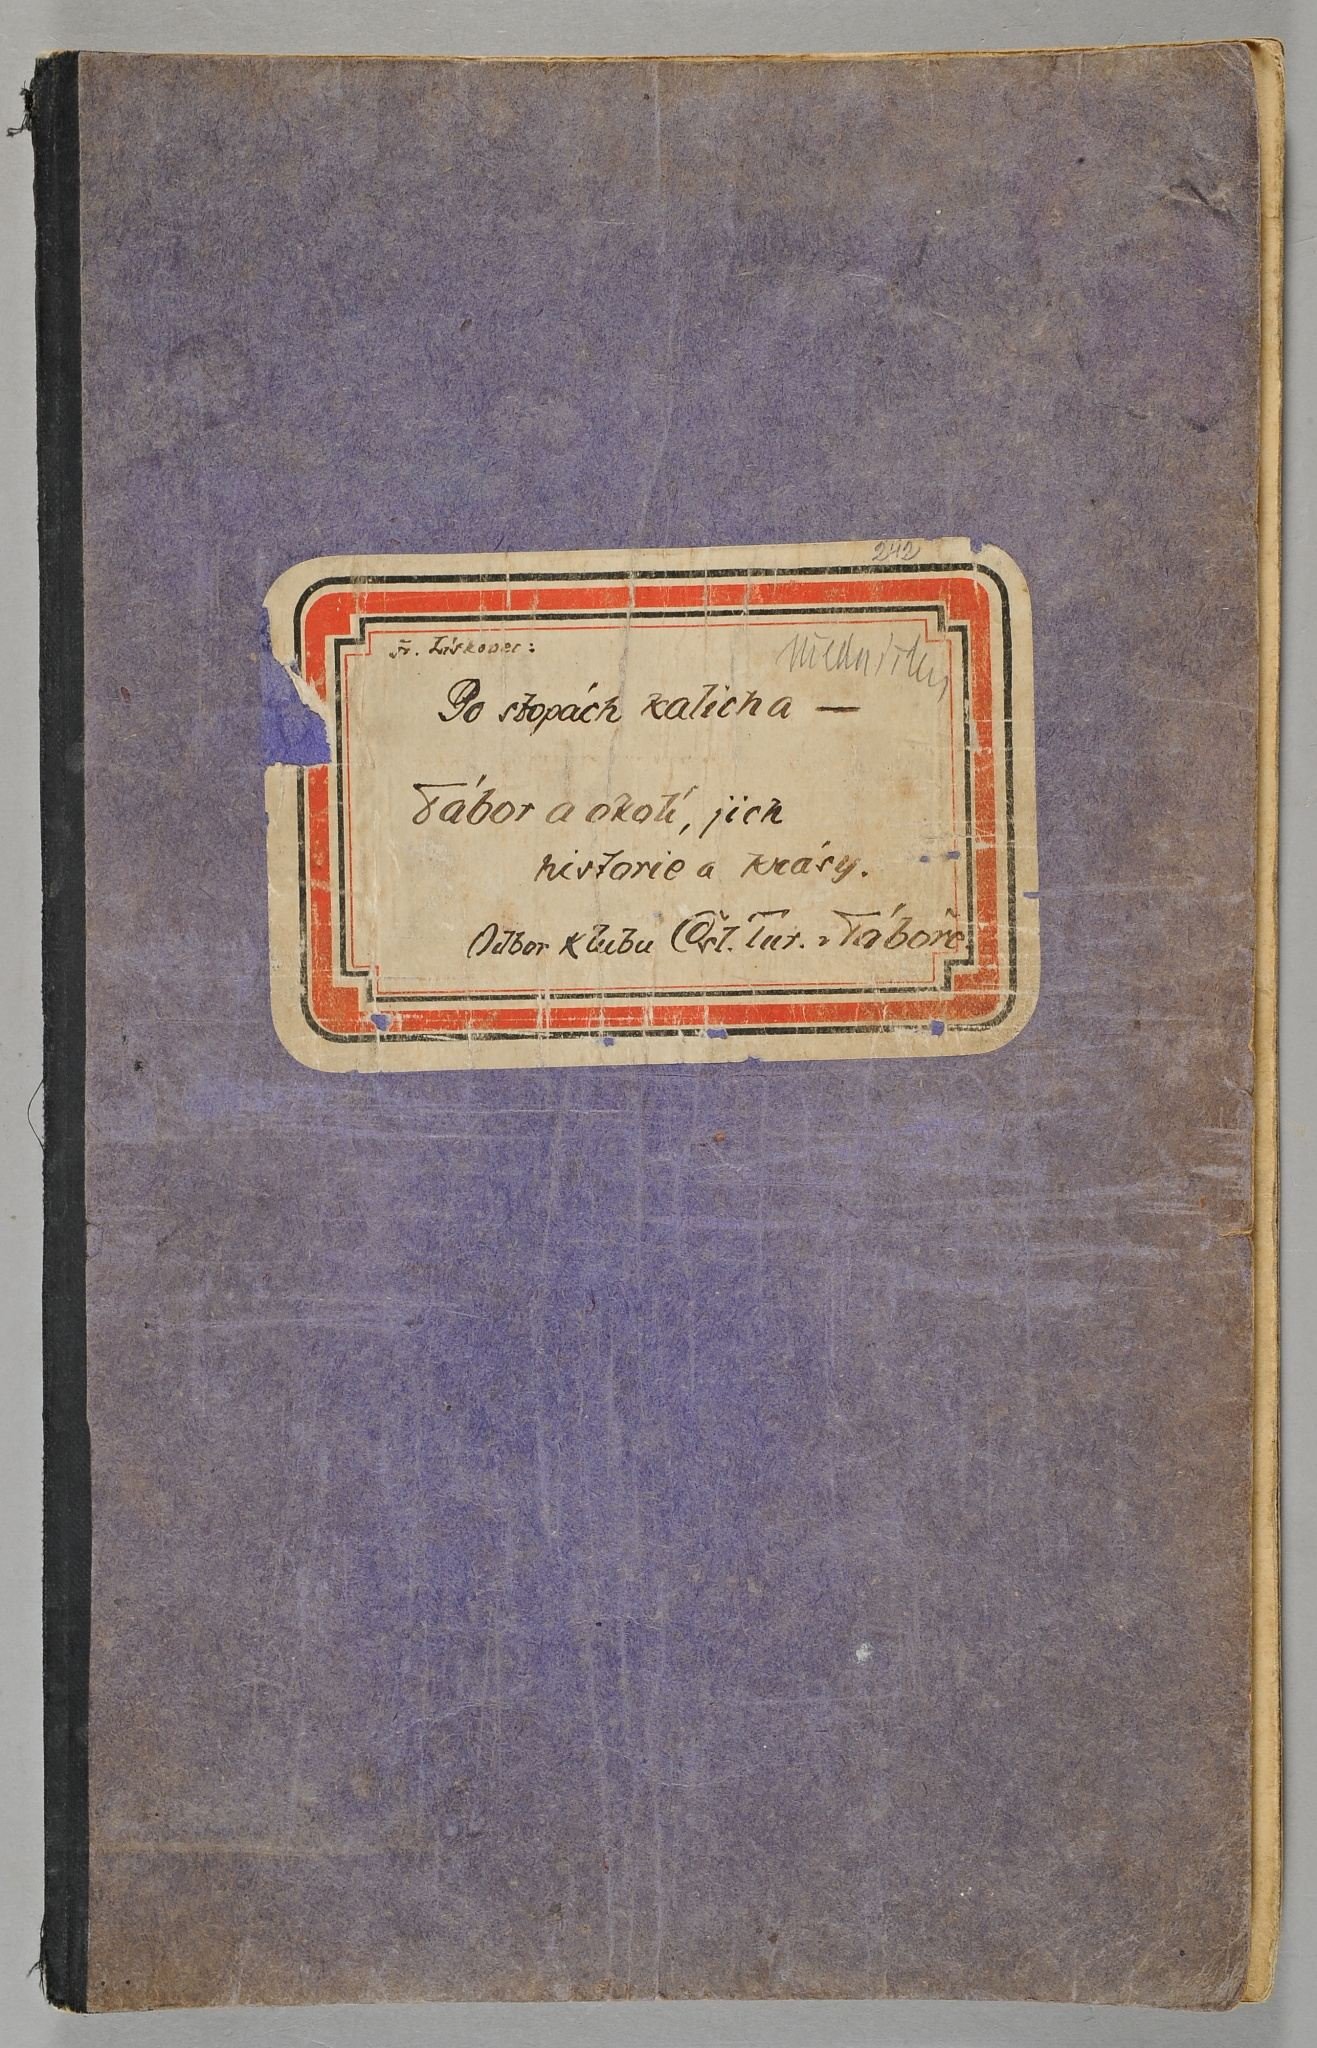 242
Fr. Lískovec:
Po stopách kalicha —
Tábor a okolí, jich
historie a krásy.
Odbor Klubu Čsl. Tur. v Táboře.